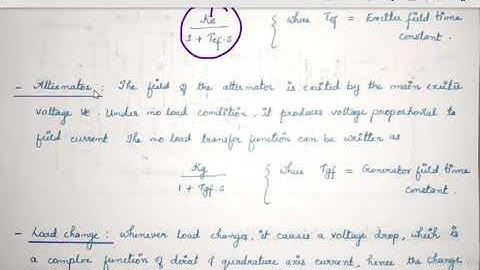 Ke
1 + Tef.s { where Tef = Exciter field time
constant.
- Alternator : The field of the alternator is excited by the main exciter
voltage Ve. Under no load condition, it produces voltage proportional to
field current The no load transfer function can be written as
Kg
1 + Tgf.s { where Tgf = Generator field time
constant.
- Load change : whenever load changes, it causes a voltage drop, which is
a complex function of direct & quadrature axis current, hence the change